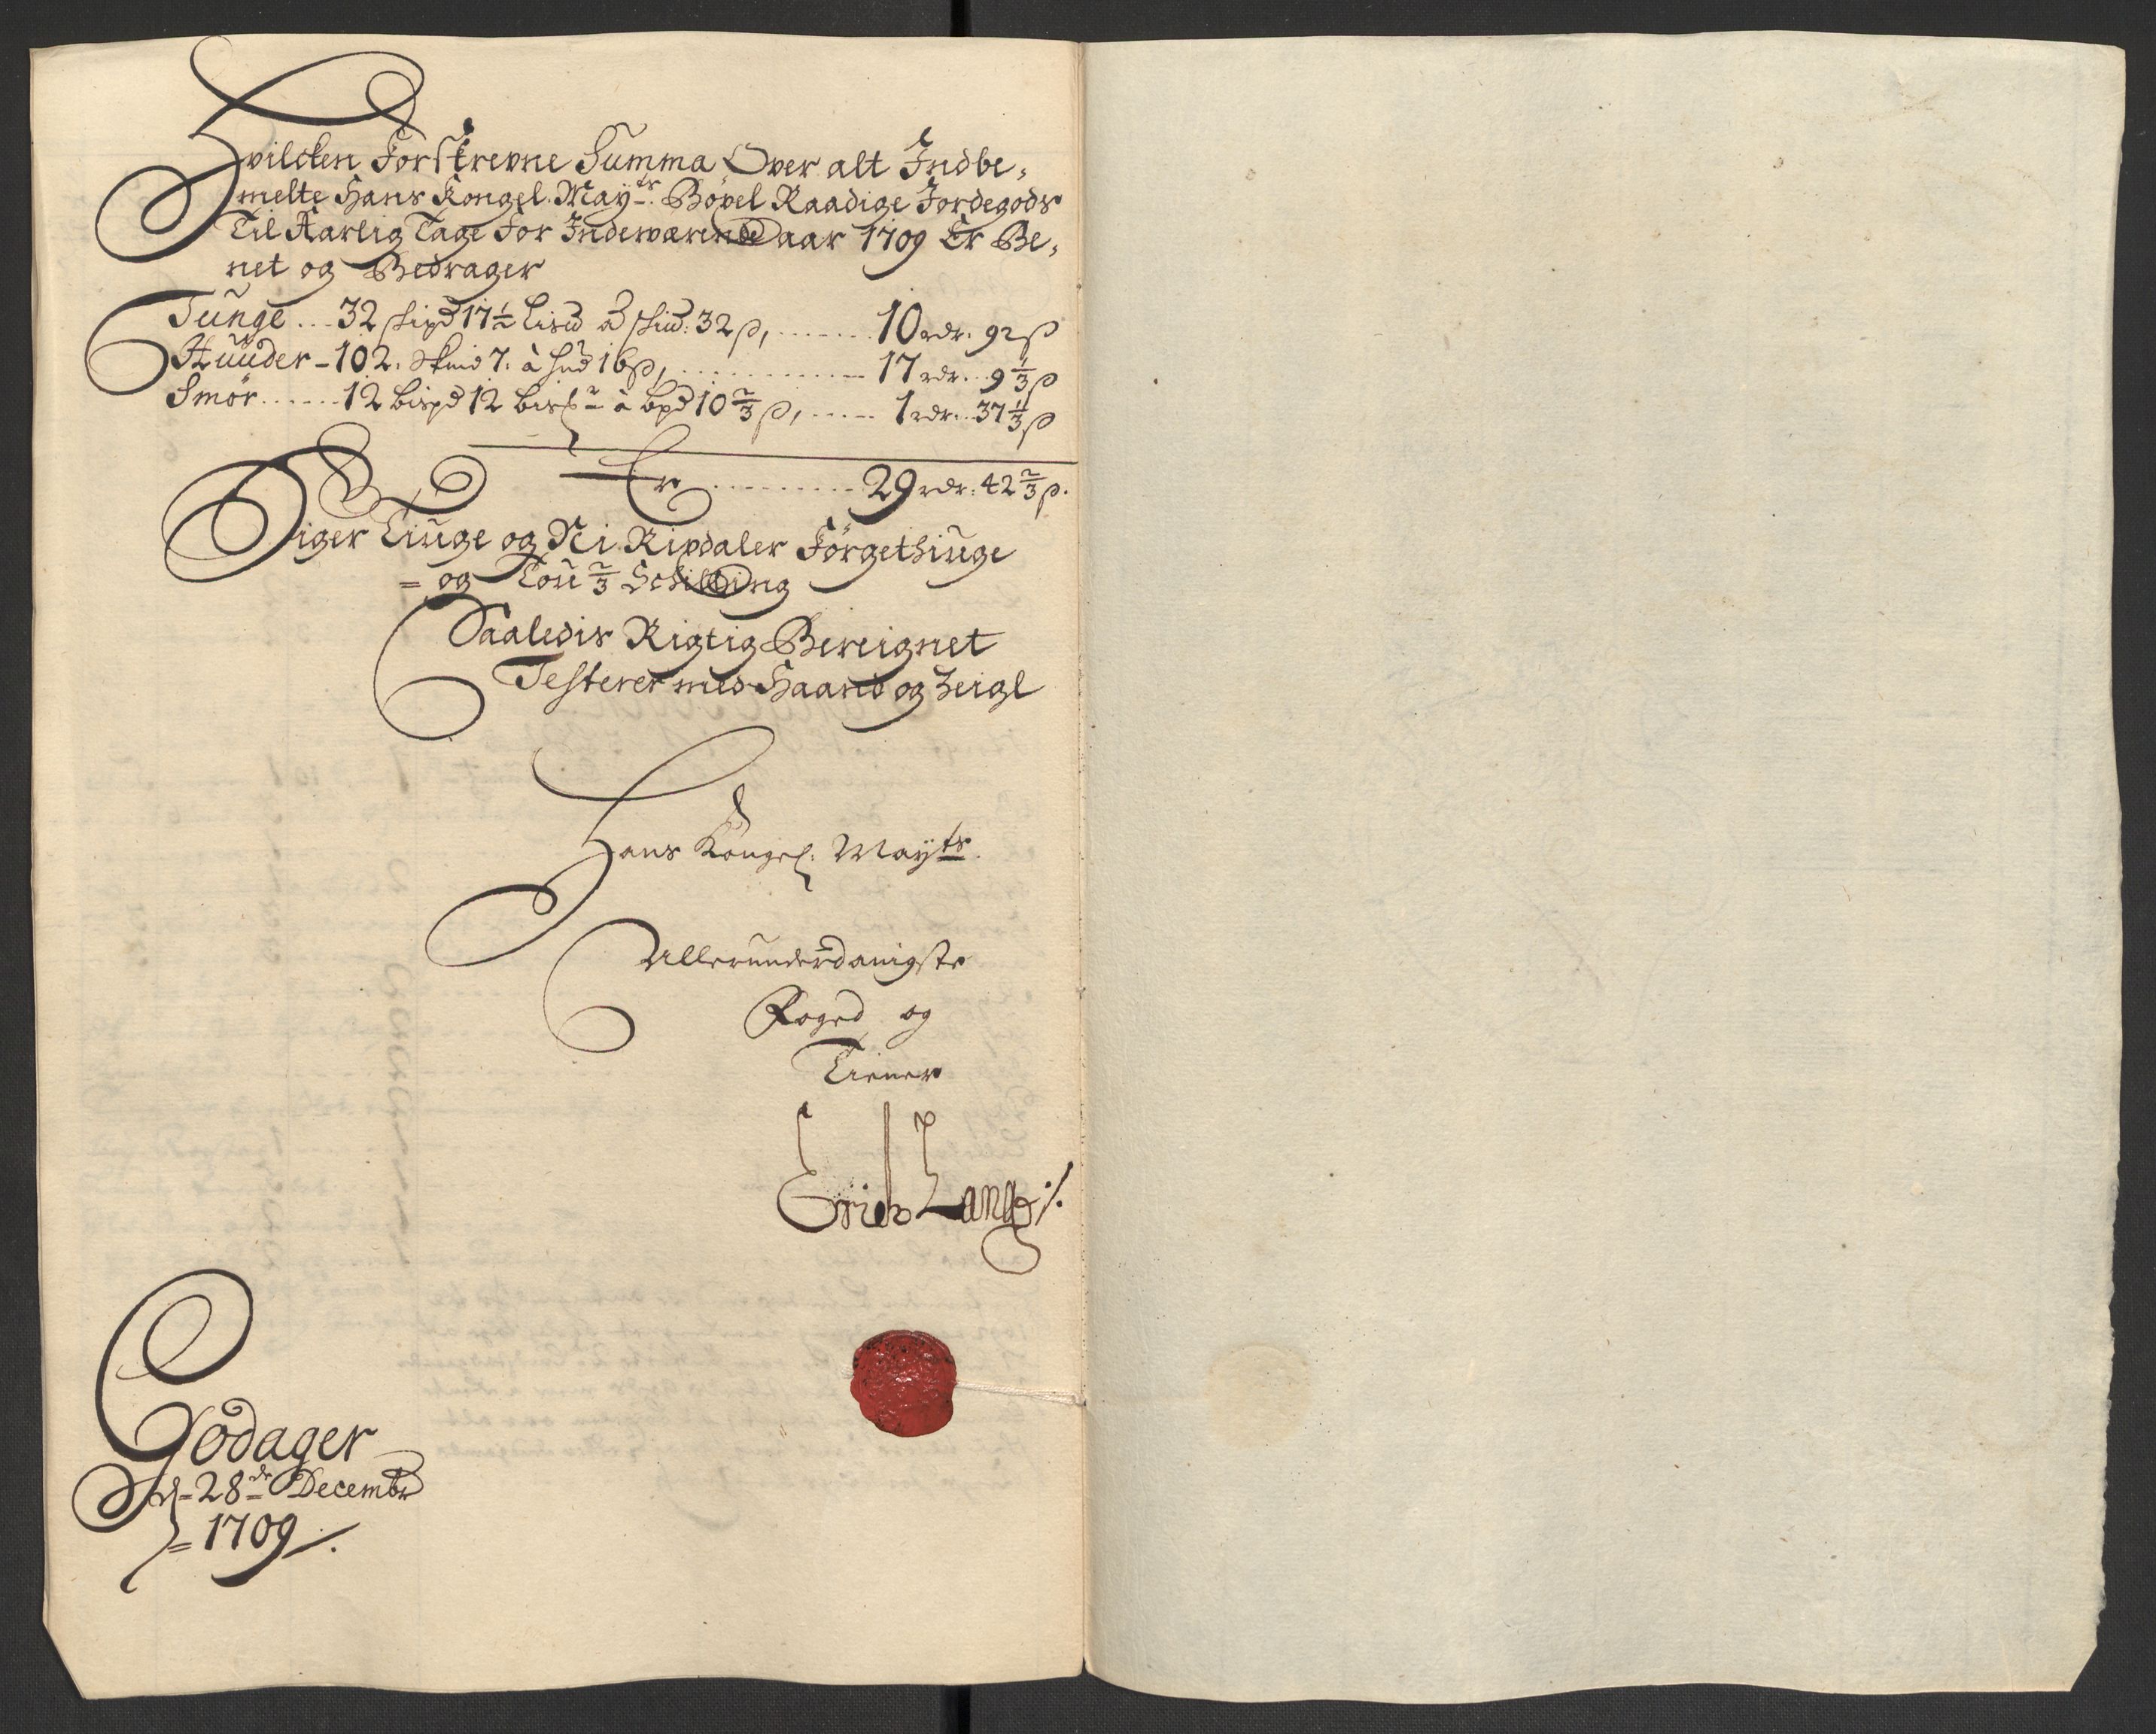 Hvilcken Forskrevne Summa Over alt Indbe,
melte Hans Kongel. Mayts. Bøxel Raadige Jordegods
Til Aarlig Tage For Indeværende aar 1709 Er Be,
net og Bedrager
Tunge ... 32 skpd 17½ Lisd a skud: 32 s, ....... 10 rdr. 92 s
Huuder - 102. Skind 7. à hud 16 s, ............ 17 rdr. 9⅓ s
Smør ...... 12 bispd 12 à bpd 10⅔ s, ..... 1 rdr. 37⅓ s
Er .......... 29 rdr. 42⅔ s.
Siger Tiuge og Ni Rixdaler Førgethiuge
= og Tou ⅔ Schilling
Saaledis Rigtig Bereignet
Testerer med Haand og Zeigl
Hans Kongel: Mayts.
Allerunderdanigste
Foged og
Tiener
Erich Lang ./.
Godager
d = 28de Decembr
= 1709 /.